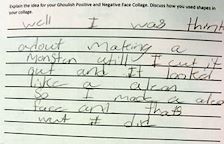 Explain the idea for your Ghoulish Positive and Negative Face Collage. Discuss how you used shapes in
your collage.
well I was think
about making a
Monster will I cut it
out and it looked
like a alean
so I made a alea
face and that's
wat I did